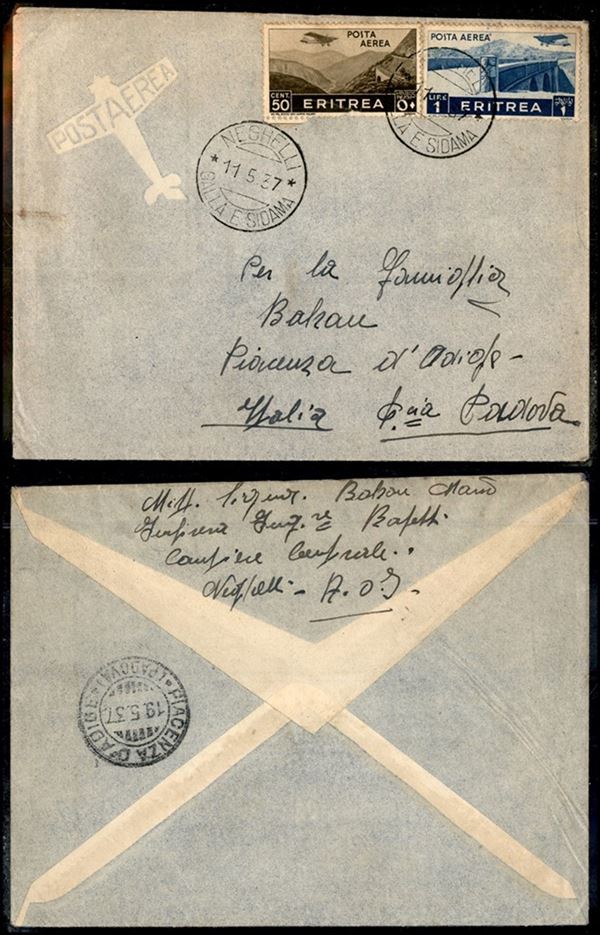 POSTA AEREA
POSTA AEREA
CENT. 50 ERITREA
POSTA AEREA
LIRE 1 ERITREA 1
NEGHELLI
* 11·5·37 *
GALLA E SIDAMA
LLA E SIDAMA
Per la Famiglia
Bakau
Piacenza d'Adige -
Italia P.cia Padova
Mitt. Bakau
Impresa
Cantiere Centrale.
Neghelli - A.O.I.
PIACENZA D'ADIGE
* (PADOVA) *
19.5.37